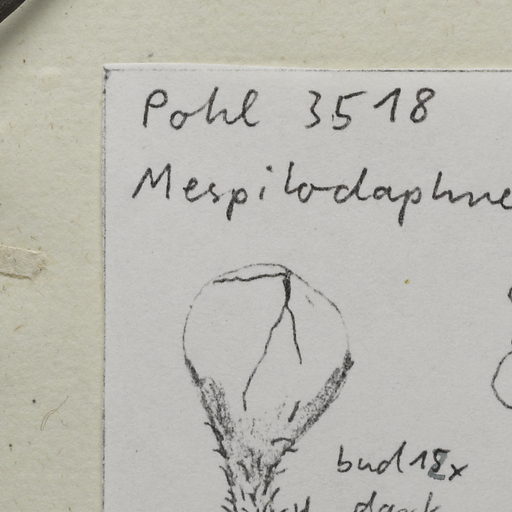 Pohl 3518
Mespilodaphne
bud 18x
dark